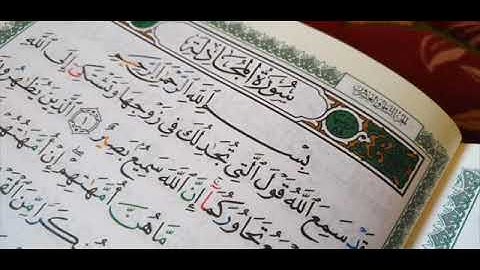 سُورَةُ المُجَادلَةِ
بِسْمِ اللَّهِ الرَّحْمَٰنِ الرَّحِيمِ
قَدْ سَمِعَ اللَّهُ قَوْلَ الَّتِي تُجَٰدِلُكَ فِي زَوْجِهَا وَتَشْتَكِي إِلَى اللَّهِ
تَحَاوُرَكُمَا إِنَّ اللَّهَ سَمِيعٌ بَصِيرٌ ١ الَّذِينَ يُظَٰهِرُونَ
مَّا هُنَّ أُمَّهَٰتِهِمْ إِنْ أُمَّهَٰتُهُمْ
مُنكَرًا مِّنَ